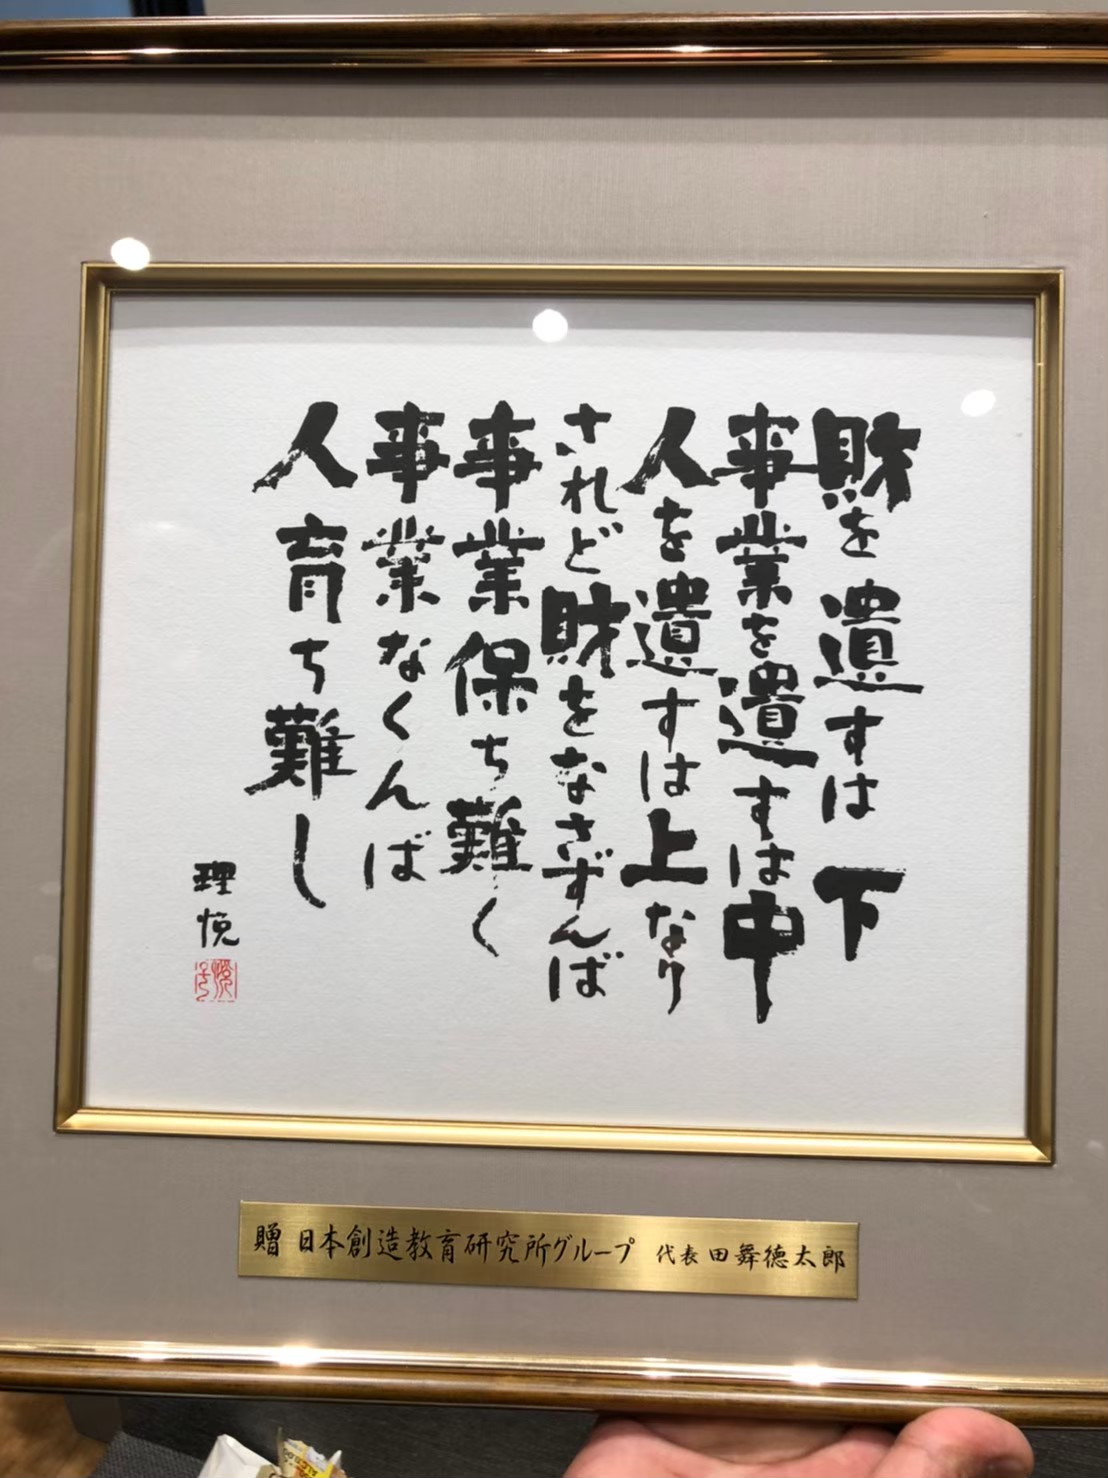 財を遺すは 下
事業を遺すは中
人を遺すは上なり
されど財をなさずんば
事業保ち難く
事業なくんば
人育ち難し
理悦
贈 日本創造教育研究所グループ 代表 田舞徳太郎